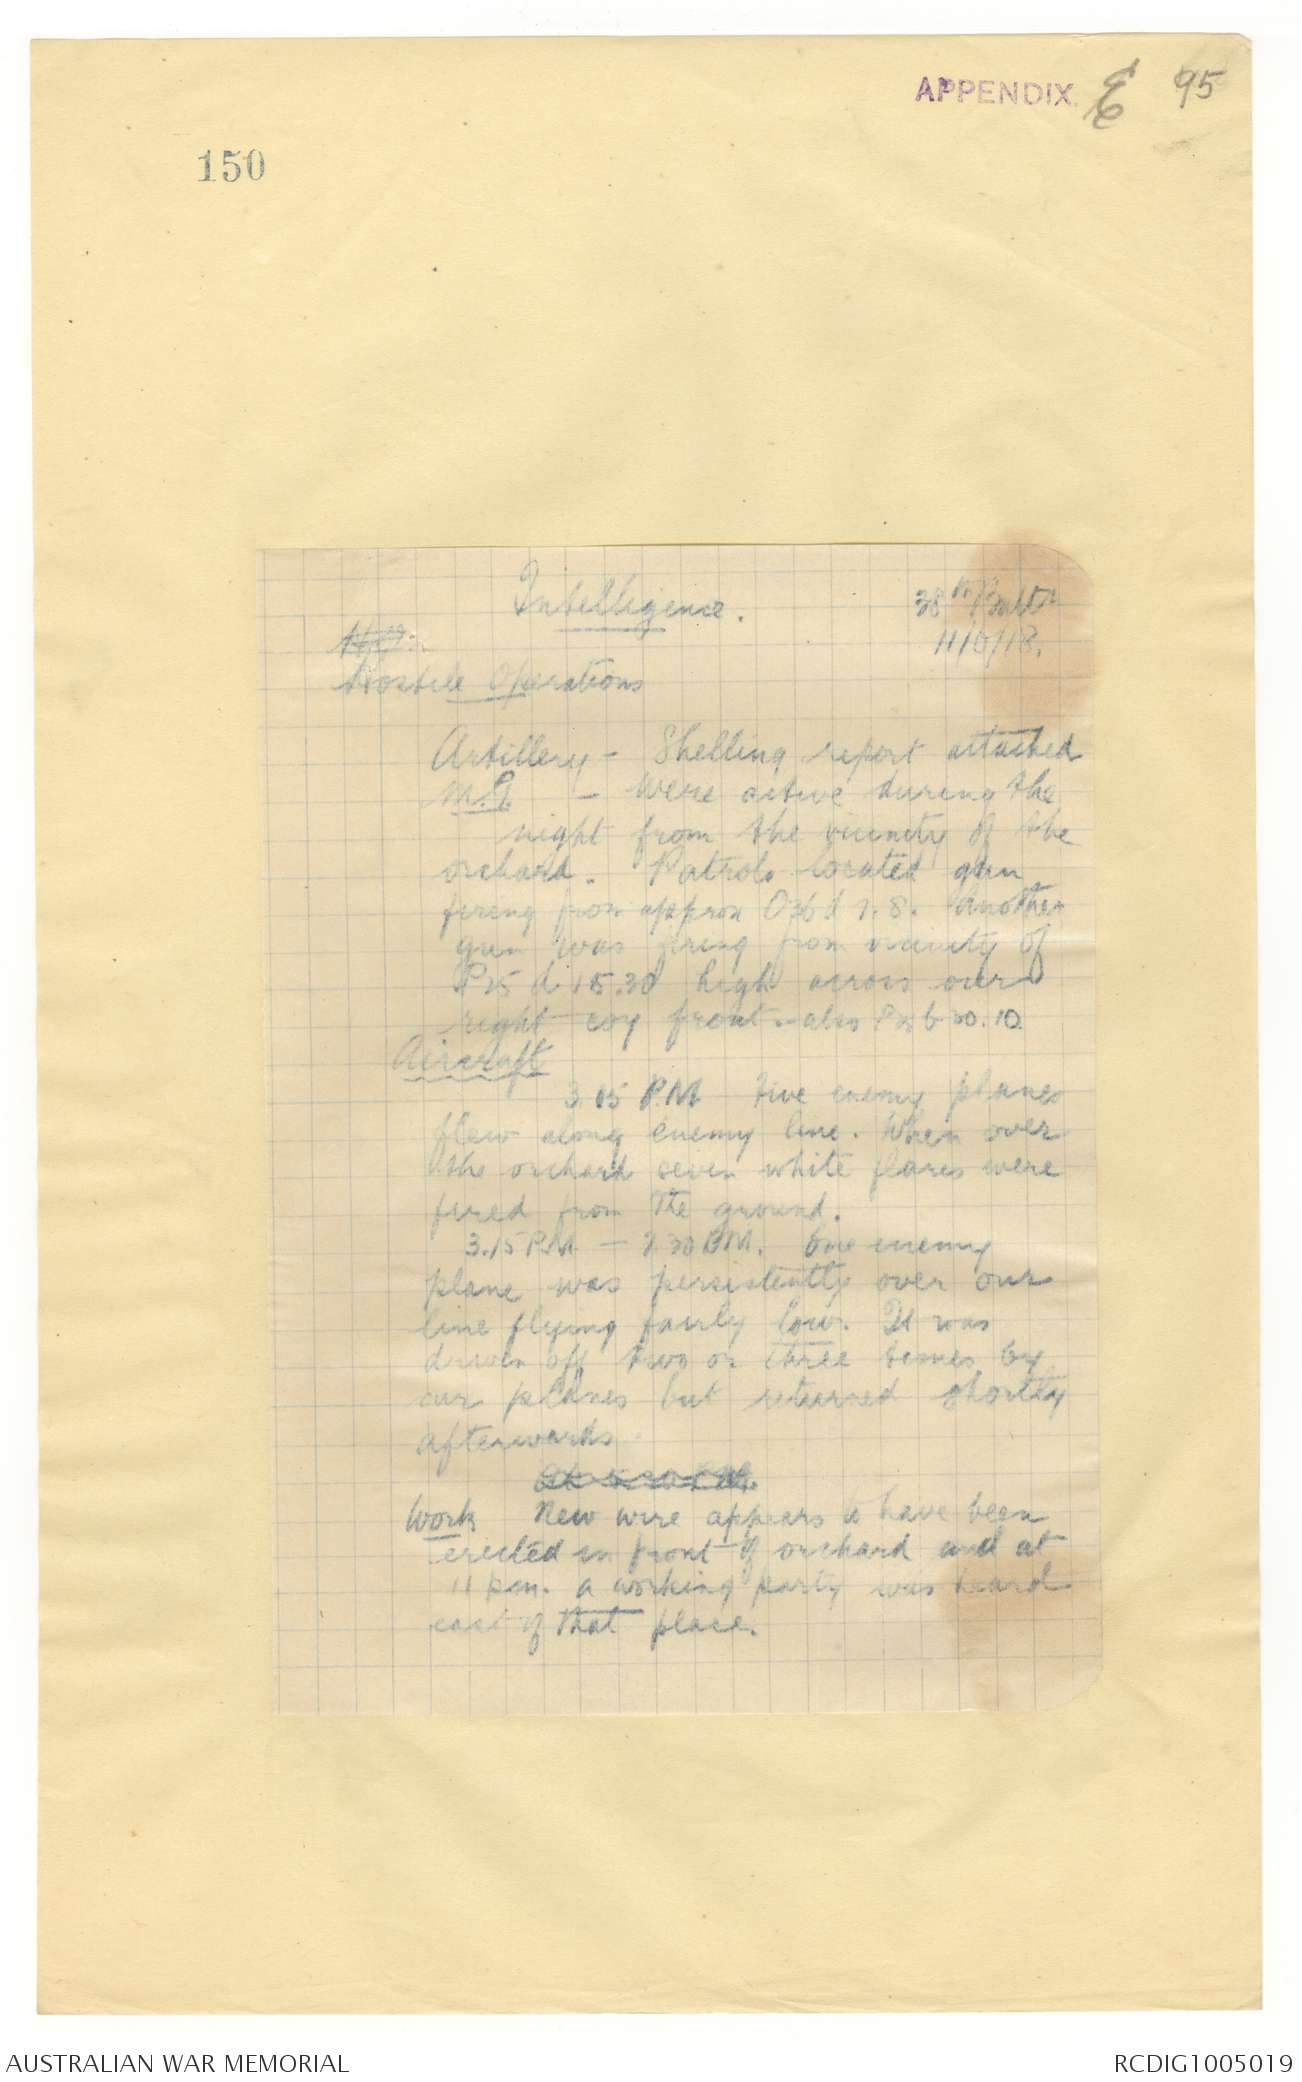 APPENDIX E 95
150
Intelligence. 38th Battn
11/5/18.
Hostile Operations
Artillery - Shelling report attached
M.G. - Were active during the
night from the vicinity of the
orchard. Patrols located gun
firing from approx O36d 7.8. Another
gun was firing from vicinity of
P25 d 15.30 high across our
right coy front - also P25b 20.10.
Aircraft
3.15 P.M Five enemy planes
flew along enemy line. When over
the orchard seven white flares were
fired from the ground.
3.15 P.M - 7.30 P.M. One enemy
plane was persistently over our
line flying fairly low. It was
driven off two or three times by
our planes but returned shortly
afterwards.
Work New wire appears to have been
erected in front of orchard and at
11 pm. a working party was heard
east of that place.
AUSTRALIAN WAR MEMORIAL RCDIG1005019